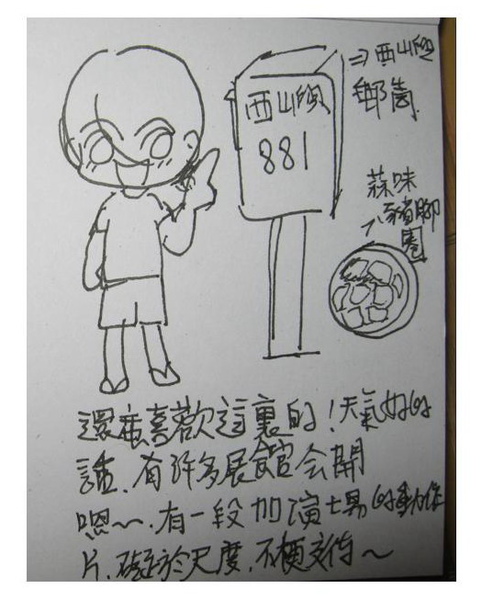 西山段
881
⇒西山段
郵筒.
蒜味
豬腳
圈
還蠻喜歡這裏的！天氣好的
話.有許多展館会開
嗯～.有一段加演士易的動作
片.礙於尺度.不便交待～